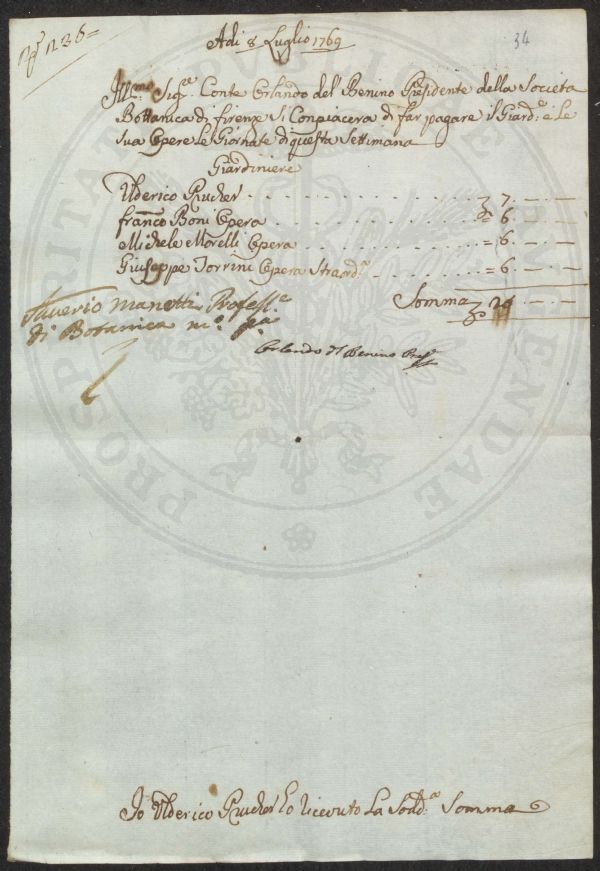 N 1236=
34
Adi 8 Luglio 1769
Ill.mo Sig.re Conte Orlando del Benino Presidente della Societa
Bottanica di firenze Si Conpiacera di far pagare il Giard.e e Le
Sua Opere Le Giornate di questa Settimana
Giardiniere
Ulderico Prucher 7. — —
franco Boni Opera = 6. — —
Michele Morelli Opera = 6. — —
Giuseppe Torrini Opera Straord.a = 6. — —
Somma — —
Saverio Manetti Profess.e
di Botanica m.o p.a
Orlando Del Benino Pres.
Io Ulderico Prucher ho riceuto La Sod.a Somma
PROSPERITATI PUBLICAE AUGENDAE